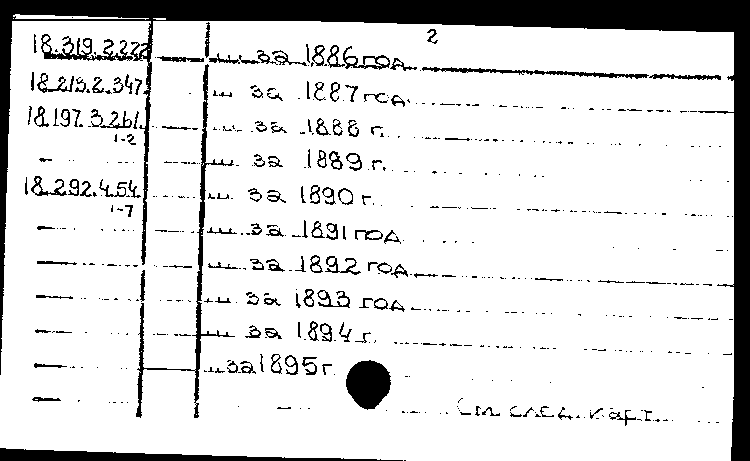 2
18.319.2.222 ... за 1886 год
18.213.2.347 ... за 1887 год.
18.197.3.261. ... за 1888 г.
1-2
— ... за 1889 г.
18.292.4.54. ... за 1890 г.
1-7
— ... за 1891 год
— ... за 1892 год
— ... за 1893 год
— ... за 1894 г.
— ... за 1895 г.
— См. след. карт.